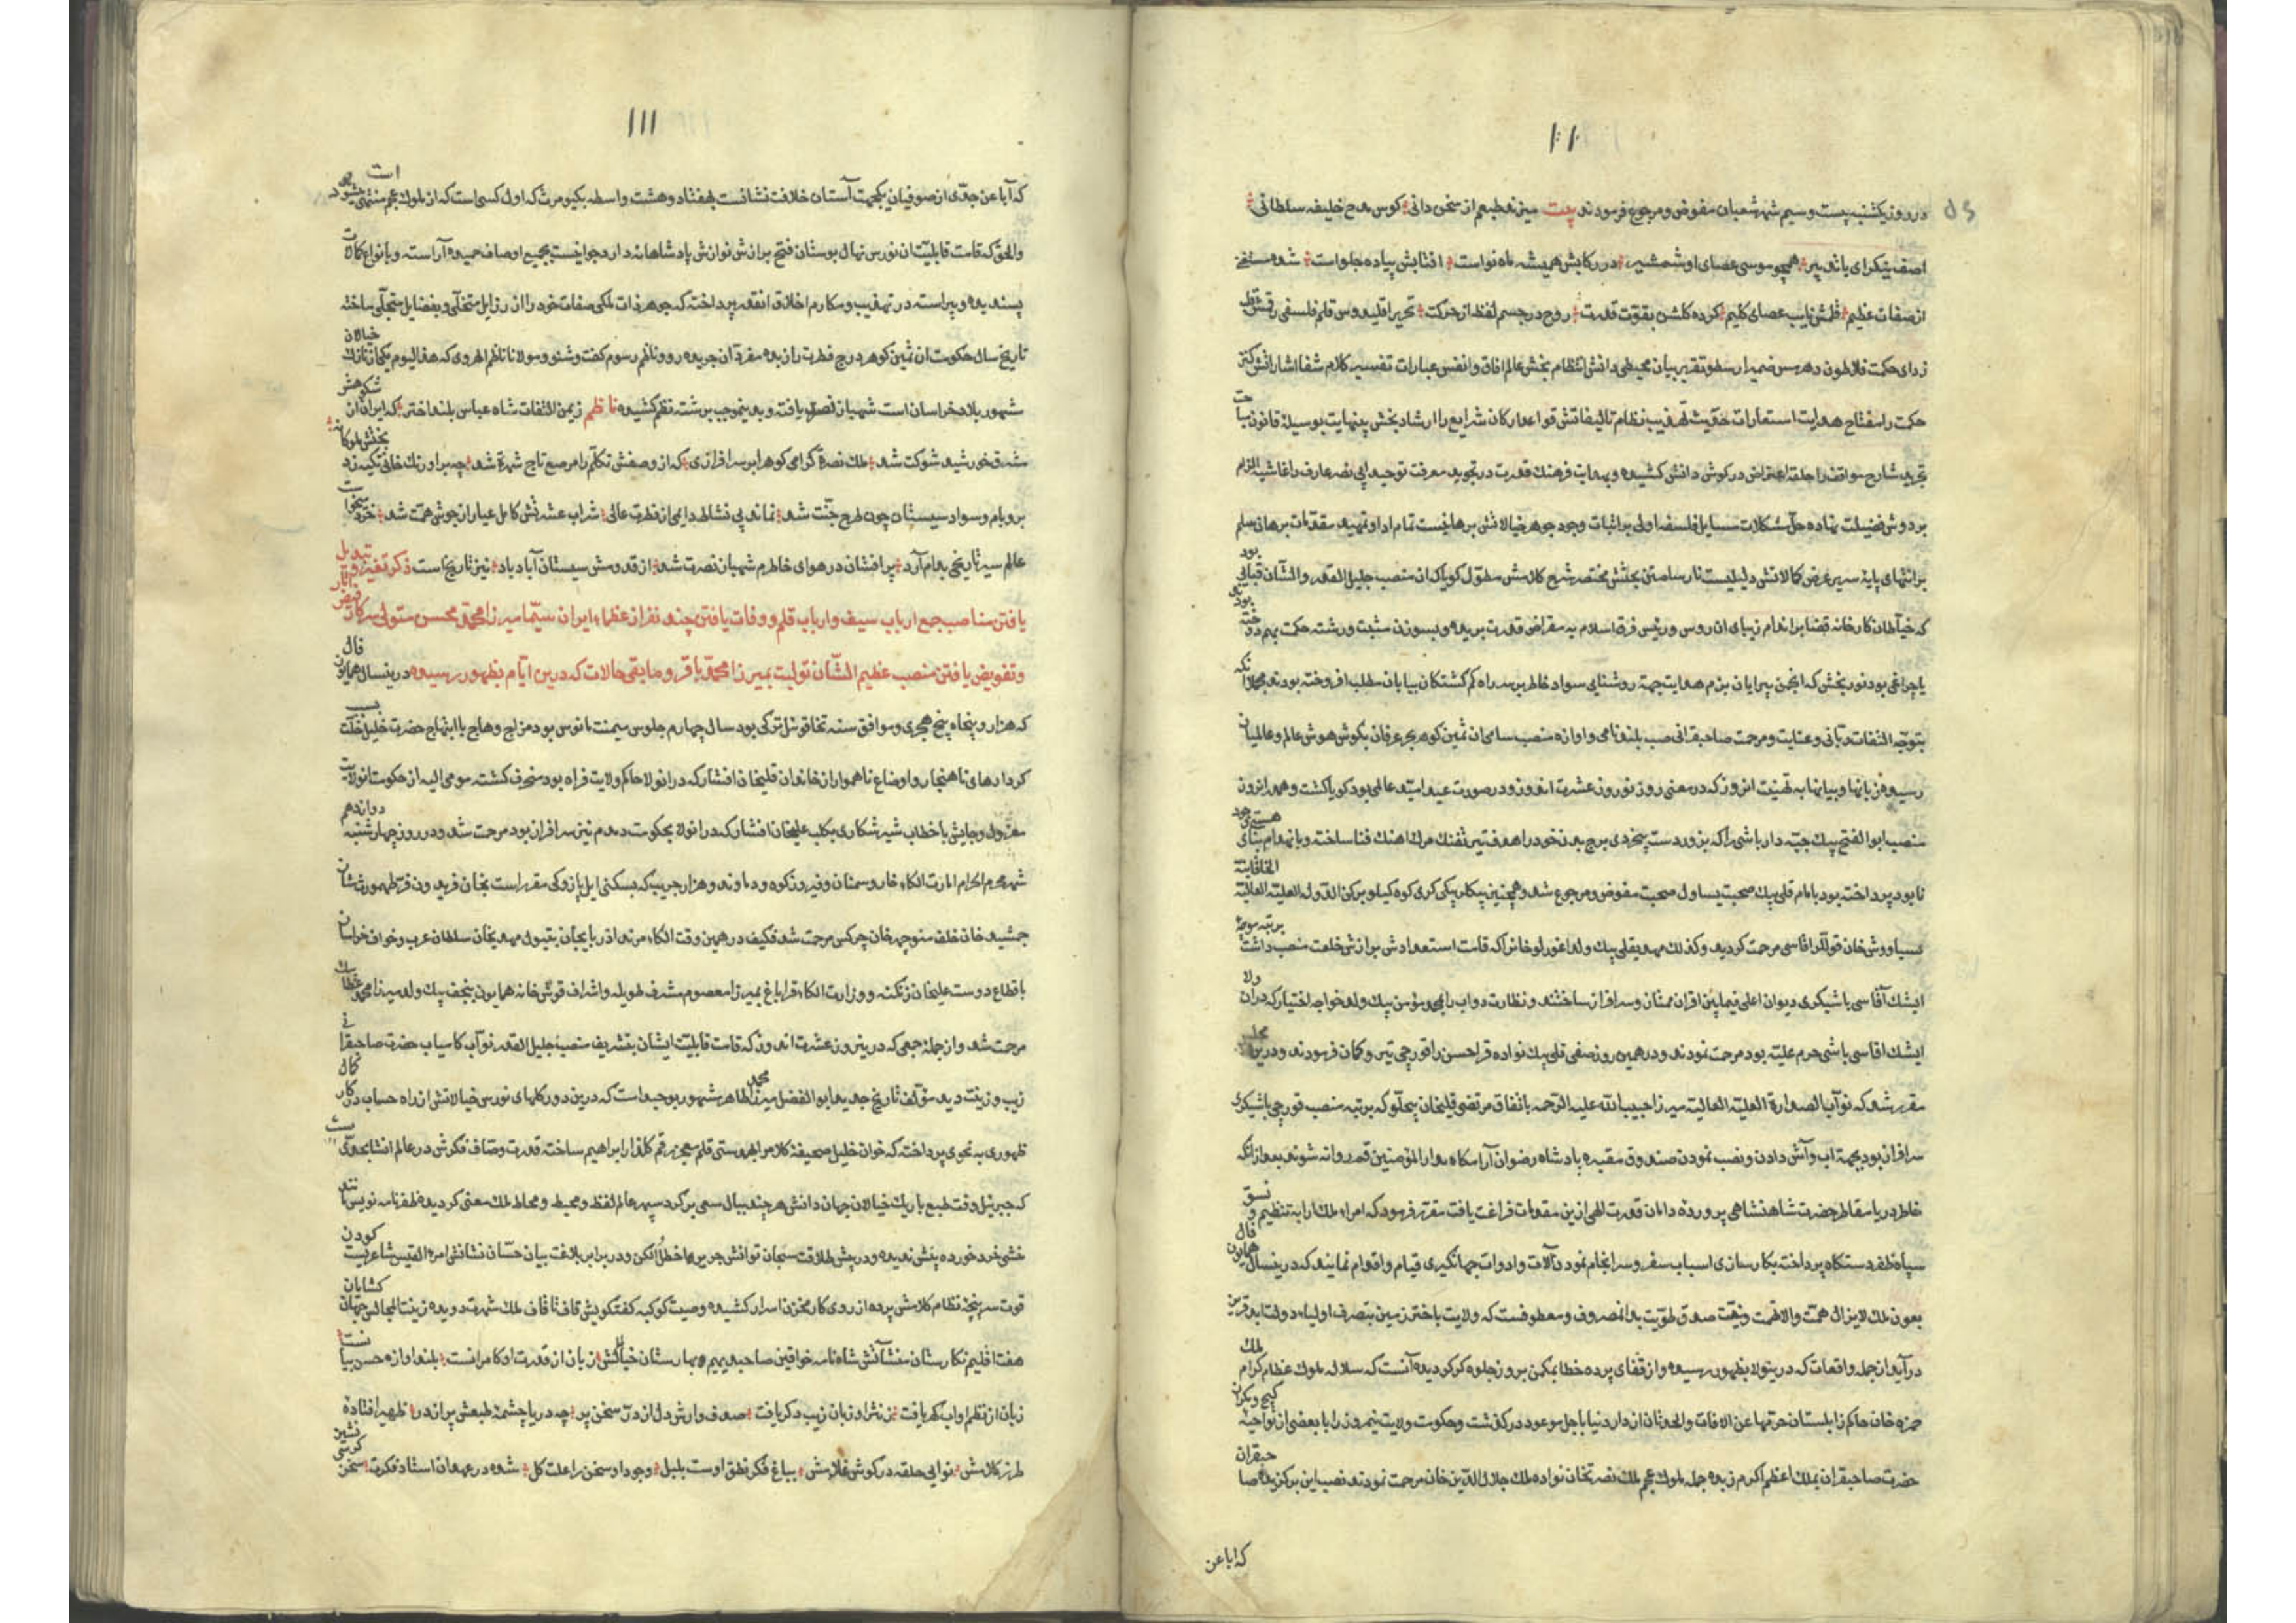 در روز یکشنبه بیست و سیم شهر شعبان مفوض و مرجوع فرمودند بیت میزند طبعم از سخن دانی کوس مدح خلیفه سلطانی
اصف بیکرای باتدبیر همچو موسی عصای او شمشیر در رکابش همیشه ماه نواست افتابش پیاده جلو است شده
از صفات عظیم قلمش نایب عصای کلیم کرده کلشن بقوت قدرت روح در جسم لفظ از حرکت تحریر اقلیدوس قلم فلسفی رقمش
زدای حکمت فلاطون دهر س ضمیر ارسطو تقریر بیان محیطی دانش انتظام بخش عالم افاق و انفس عبارات تفسیر کلام شفا اشاراتش
حکمت را مفتاح هدایت استعارات تهذیب نظام تالیفاتش قواعد ارکان شرایع را ارشاد بخش بینهایت بوسیله قانون
تجرید شارح مواقف را حلقه اعتراض در کوش دانش کشیده و بهدایت فرهنك قدرت در تجوید معرفت توحید ابی نصر عارف را غاشیه الزام
بر دوش فضیلت نهاده حل مشکلات مسایل فلسفه اولی بر اثبات وجود جوهر خیالاتش برهانیست تمام ادا و تمهید مقدمات برهان سلم
بر انتهای پایه سریر عرض کمالاتش دلیلیست نارسا متن بخشش مختصر شرح کلامش مطول کویا که ان منصب جلیل القدر والشان قبایی بود
که خیاطان کارخانه قضا بر اندام زیبای ان روس و رئیس فرق اسلام به مقراض قدرت بریده و بسوزن مشیت و رشته حکمت بهم دوخته بودند
یا چراغی بود نور بخش که انجمن پیرایان بزم هدایت جهة روشنایی سواد خاطر بر سر راه کم کشتکان بیابان مطلب افروخته بودند
بتوجه التفات ربانی و عنایت و مرحمت صاحبقرانی صیت بلند نامی و اوازه منصب سامی ان ثمین کوهر بحر عرفان بکوش هوش عالم و عالمیان
رسیده زبانها و بیانها به تهنیت انروز که در معنی روز نوروز عشرت اندوز و در صورت عید امید عالمی بود کویا کشت و هم در انروز
منصب ابو الفتح بیك جبه دار باشی را که بزور دست بیخردی برج بدن خود را هدف تیر تفنك مرك اهنك فنا ساخته و بانهدام بنای هستی خود
نابود پرداخته بود بامام قلی بیك صحبت یساول صحبت مفوض و مرجوع شد و همچنین بیکلر بیکی کری کوه کیلو برکن الدوله العلیة العالیة الخاقانیة
سیاوش خان قوللر اقاسی مرحمت کردید و کذلك مهدیقلی بیك ولد اغورلو خان را که قامت استعدادش برازش خلعت منصب داشت بمرتبه
ایشك آقاسی باشیکری دیوان اعلی فیمابین اقران ممتاز و سرافراز ساختند و نظارت دواب را بمحمد مؤمن بیك ولد خواجه اختیار که دران ولا
ایشك اقاسی باشی حرم علیه بود مرحمت نمودند و در همین روز صفی قلی بیك نواده قرا حسن را قورچی تیر و کمان فرمودند و درین
مقرر شد که نوآب الصدارة العلیة العالیه میرزا حبیب الله علیه الرحمه باتفاق مرتضی قلیخان بیجلو که برتبه منصب قورچی باشیکری
سرافراز بود بجهة اب و آش دادن و نصب نمودن صندوق مقبره پادشاه رضوان آرامکاه بدار المؤمنین قم روانه شوند بعد از انکه
خاطر دریا مقاطر حضرت شاهنشاهی پرورده دامان قدرت الهی ازین مقدمات فراغت یافت مقرر فرمود که امراء ملك ارا به تنظیم و نسق
سپاه ظفر دستکاه پرداخته بکارسازی اسباب سفر و سرانجام نمودن آلات و ادوات جهانکیری قیام و اقدام نمایند که درینسال همایون فال
بعون ملك لایزال همت والانهمت و نیت صدق طویت بدان مصروف و معطوفست که ولایت باختر زمین بتصرف اولیاء دولت ابد قرین
درآید از جمله واقعات که درینولا بظهور رسیده و از قفای پرده خفا بمکمن بروز جلوه کر کردیده آنست که سلاله ملوك عظام کرام ملك
حمزه خان حاکم زابلستان حرتها عن الافات والحدثان از دار دنیا باجل موعود درکذشت و حکومت ولایت نیمروز را با بعضی از نواحی کیج و مکران
حضرت صاحبقران بملك اعظم اکرم زبده جمله ملوك عجم ملك نصرتخان نواده ملك جلال الدین خان مرحمت نمودند نصب این برکزیده صاحبقران
که ابا عن
۱۱۱
که آبا عن جدی از صوفیان یکجهت آستان خلافت نشانست بهفتاد و هشت واسطه بکیومرث که اول کسی است که از ملوك عجم منتهی میشود
والحق که قامت قابلیت ان نورس نهال بوستان فتح برازش نوازش پادشاهانه دارد جوانیست بجمیع اوصاف حمیده آراسته و بانواع کمالات
پسندیده و پیراسته در تهذیب و مکارم اخلاق انقدر پرداخته که جوهر ذات ملکی صفات خود را از رزایل متخلی و بفضایل متجلی ساخته
تاریخ سال حکومت ان ثمین کوهر درج فطرت را زبده سفردان جریده رو و ناظم رسوم کفت و شنو مولانا ناظم الهروی که هذا الیوم یکه تاز نازك خیالان
مشهور بلاد خراسان است شهباز نصرة یافته و بدینموجب برشته نظم کشیده ناظم ز یمن التفات شاه عباس بلند اختر که ایران از شکوهش
مشرق خورشید شوکت شد ملك نصرة کرامی کوهر ابر سرافرازی که از وصفش تکلم را مرصع تاج شهرة شد چه بر اورنك خانی تکیه زد
بر و بام و سواد سیستان چون طرح جنت شد نماند بی نشاط دایمی از فطرت عالی شراب عشرتش کامل عیار از جوش همت شد
عالم سیر تاریخی بدام آرد پر افشان در هوای خاطرم شهباز نصرت شد از قدومش سیستان آباد باد نیز تاریخ است ذکر تغییر و تبدیل
یافتن مناصب جمع ارباب سیف و ارباب قلم و وفات یافتن چند نفر از عظماء ایران سیما میرزا محمد محسن متولی سرکار فیض آثار
و تفویض یافتن منصب عظیم الشان تولیت بمیرزا محمد باقر و مابقی حالات که درین ایام بظهور رسیده درینسال همایون فال
که هزار و پنجاه پنج هجری و موافق سنه تخاقوی ئیل ترکی بود سال چهارم جلوس میمنت مانوس بود مزاج وهاج با ابتهاج حضرت خلیل خلت
کردارهای ناهنجار و اوضاع ناهموار از خاندان قلیخان افشار که در انولا حاکم ولایت فراه بود منحرف کشته مومی الیه از حکومت انولایت
معزول و جایش با خطاب شیر شکاری بکلب علیخان افشار که در انولا بحکومت نیز سرافراز بود مرحمت شد و در روز چهارشنبه دوازدهم
شهر محرم الحرام امارت الکاء خار و سمنان و فیروزکوه و دماوند و هزار جریب که بسکنی ایل پازوکی مقرر است بخان فریدون فر طهمورث شان
جمشید خان خلف منوچهر خان چرکس مرحمت شد فکیف در همین وقت الکاء مرند اذربایجان بتیول مهدیخان سلطان عرب و خواف خراسان
باقطاع دوست علیخان زنکنه و وزارت الکاء قراباغ بمیرزا معصوم مشرف طویله و اشراف قوشخانه همایون بنجف بیك ولد میرزا محمد
مرحمت شد و از جمله جمعی که درینروز عشرت اندوز که قامت قابلیت ایشان بتشریف منصب جلیل القدر نوآب کامیاب حضرت صاحبقرانی
زیب و زینت دید مؤلف تاریخ جدید ابو الفضل میرزا محمد طاهر مشهور بوحید است که درین دور کلهای نورس خیالاتش از راه حساب در کار کمال
ظهوری به نحوی پرداخته که خوان خلیل صحیفه کلام را بهدستی قلم معجز رقم کلزار ابراهیم ساخته قدرت وصاف فکرش در عالم انشا بحدی
که جبرئیل وقت طبع باریك خیالان جهان دانش هر چند ببال سعی بر کرد سپهر عالم لفظ و محیط و محاط ملك معنی کردید ظفرنامه نویس
منشی خرد خورده بینش ندیده و در پیش طلاقت سبحان توانش جریر ها خطل الکن و در برابر بلاغت بیان حسان نشانش امرء القیس شاعریست کودن
قوت سرپنجه نظام کلامش پرده از روی کار مخزن اسرار کشیده و صیت کوکبه کفتکویش قاف تا قاف ملك شهرت دویده زینت المجالس جهان کشایان
هفت اقلیم نکارستان منشآتش شاه نامه خواقین صاحب دیهیم و بهارستان خیالش زبان از قدرت او کامرانست بلند اوازه حسن بیانست
زبان از نظم او اب کهر یافت ز نثر او زبان زیب دکر یافت صدف وارش دل از در سخن پر چه دریا چشمه طبعش پر از در ظهیر افتاده
طرز کلامش نوایی حلقه در کوش غلامش بباغ فکر نطق اوست بلبل وجود او سخن را علت کل شده در عهد ان استاد فکرت سخن کرسی نشین